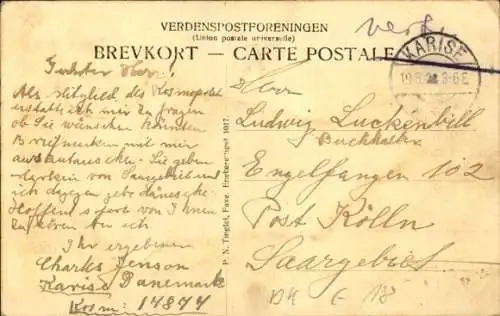 VERDENSPOSTFORENINGEN
(Union postale universelle)
BREVKORT — CARTE POSTALE
KARISE
Geehrter Herr!
Als Mitglied des Kosmopolit
erlaube ich mir zu fragen
ob Sie wünschen könnten
Briefmarken mit mir
austauschen. Sie geben
Marken von Saargebiet und
ich dagegen gebe dänische.
Hoffend sofort von Ihnen
zu hören bin ich
Ihr ergebener
Charles Jenson
Karise Danemark
Kosm: 17877
P. N. Tiegles, Faxe. Eneberettiget 1017.
Herr
Ludwig Luckenbill
Buchhalter
Engelfangen 102
Post Kölln
Saargebiet